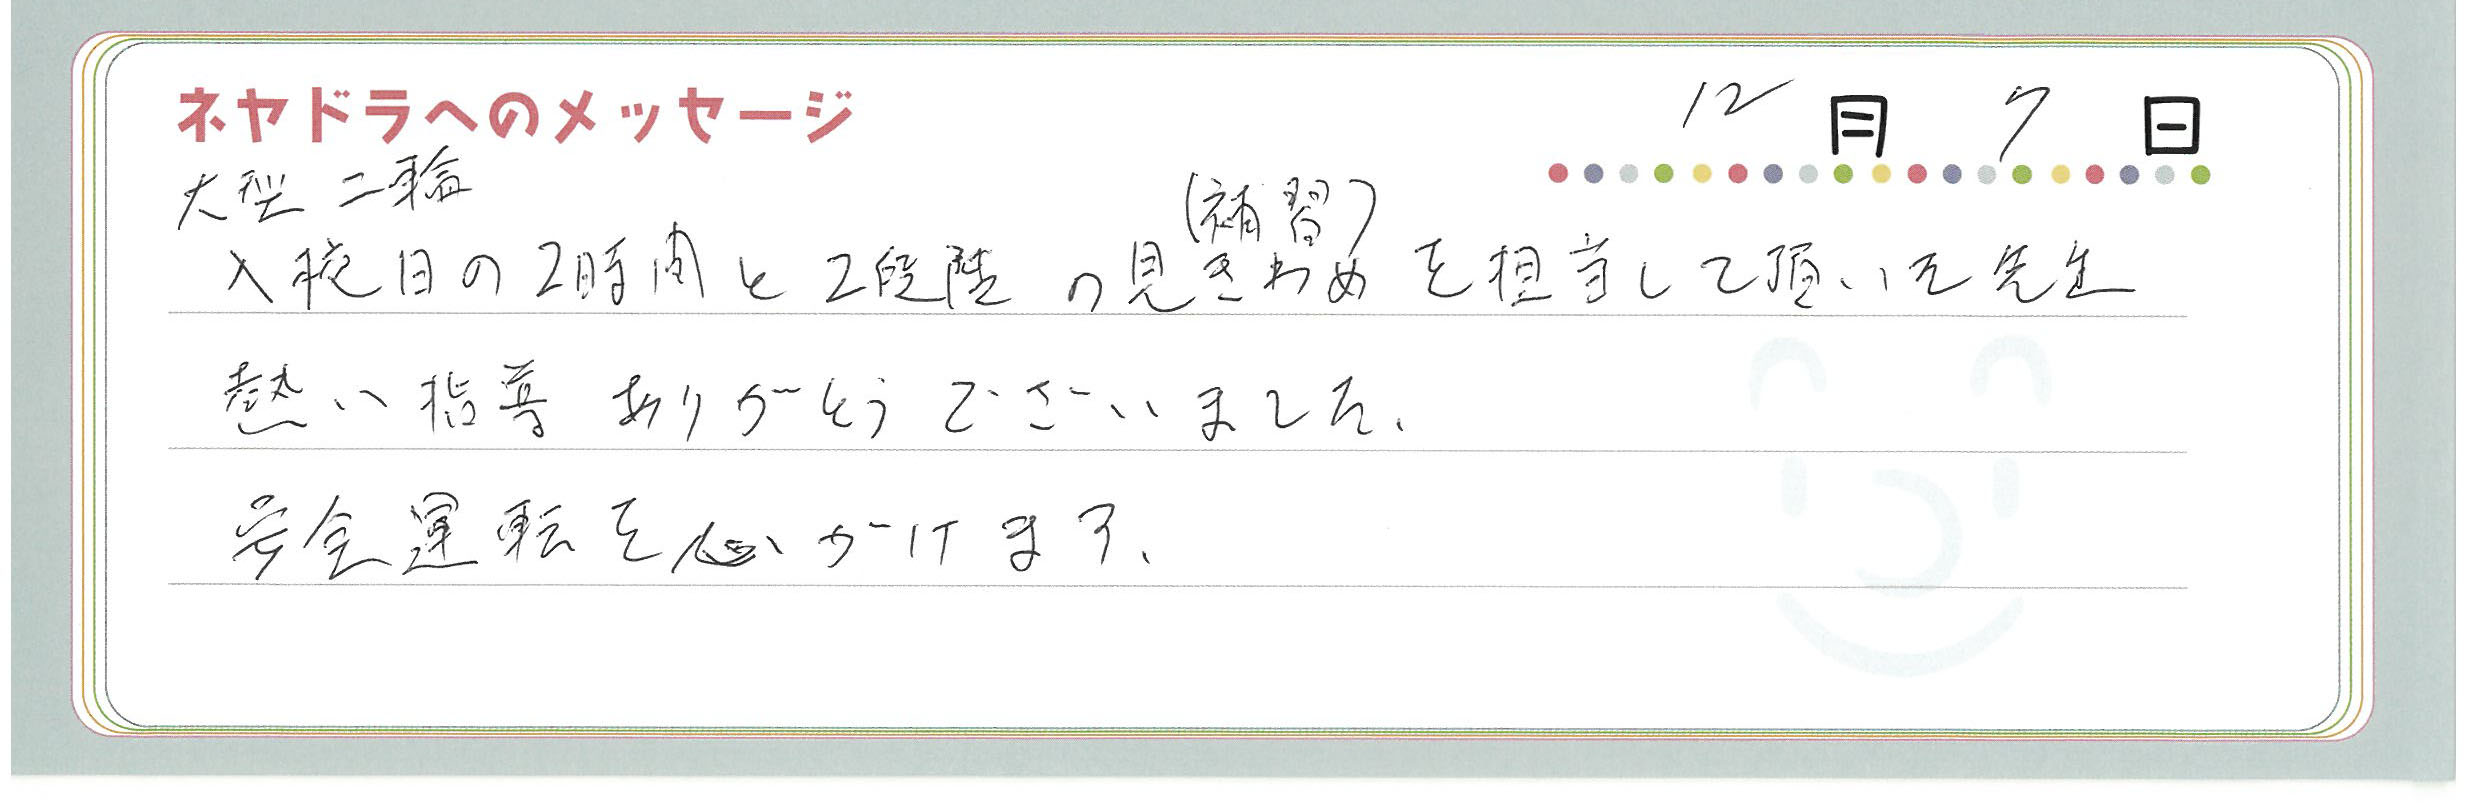 ネヤドラへのメッセージ
12月7日
大型二輪
(補習)
入校日の2時間と2段階の見きわめを担当して頂いた先生
熱い指導ありがとうございました.
安全運転を心がけます.